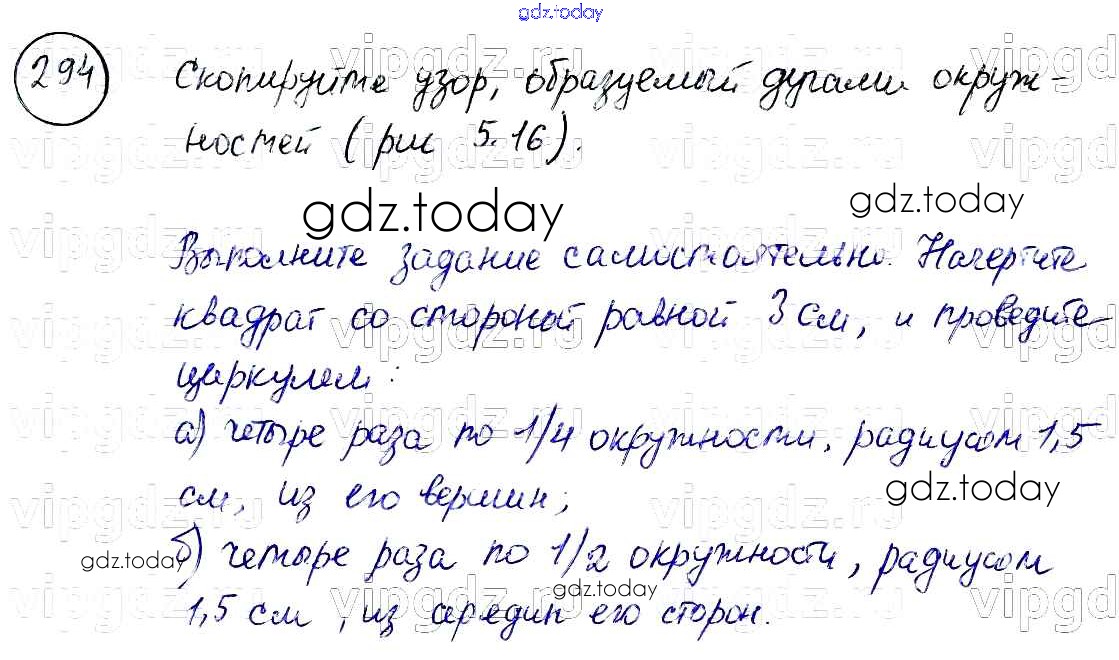 gdz.today
294 Скопируйте узор, образуемый дугами окруж-
ностей (рис 5.16).
gdz.today
gdz.today
Выполните задание самостоятельно. Начертите
квадрат со стороной равной 3 см, и проведите
циркулем:
а) четыре раза по 1/4 окружности, радиусом 1,5
см, из его вершин;
gdz.today
gdz.today
б) четыре раза по 1/2 окружности, радиусом
gdz.today
1,5 см, из середин его сторон.